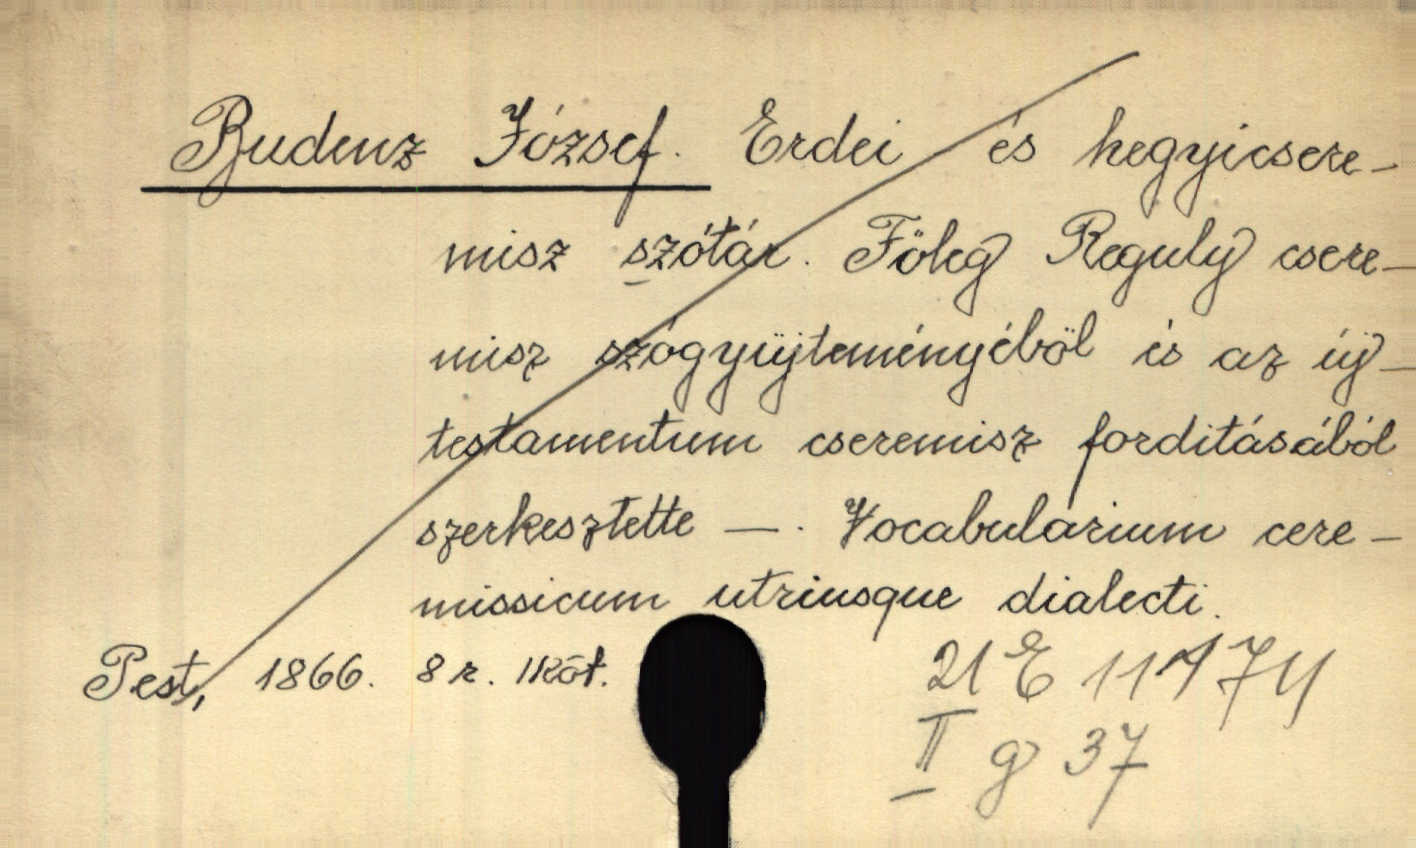 Budenz József. Erdei és hegyicsere-
misz szótár. Föleg Reguly csere-
misz szógyüjteményéböl és az új-
testamentum cseremisz forditásából
szerkesztette —. Vocabularium cere-
missicum utriusque dialecti.
Pest, 1866. 8 r. 1 köt.
II g 37